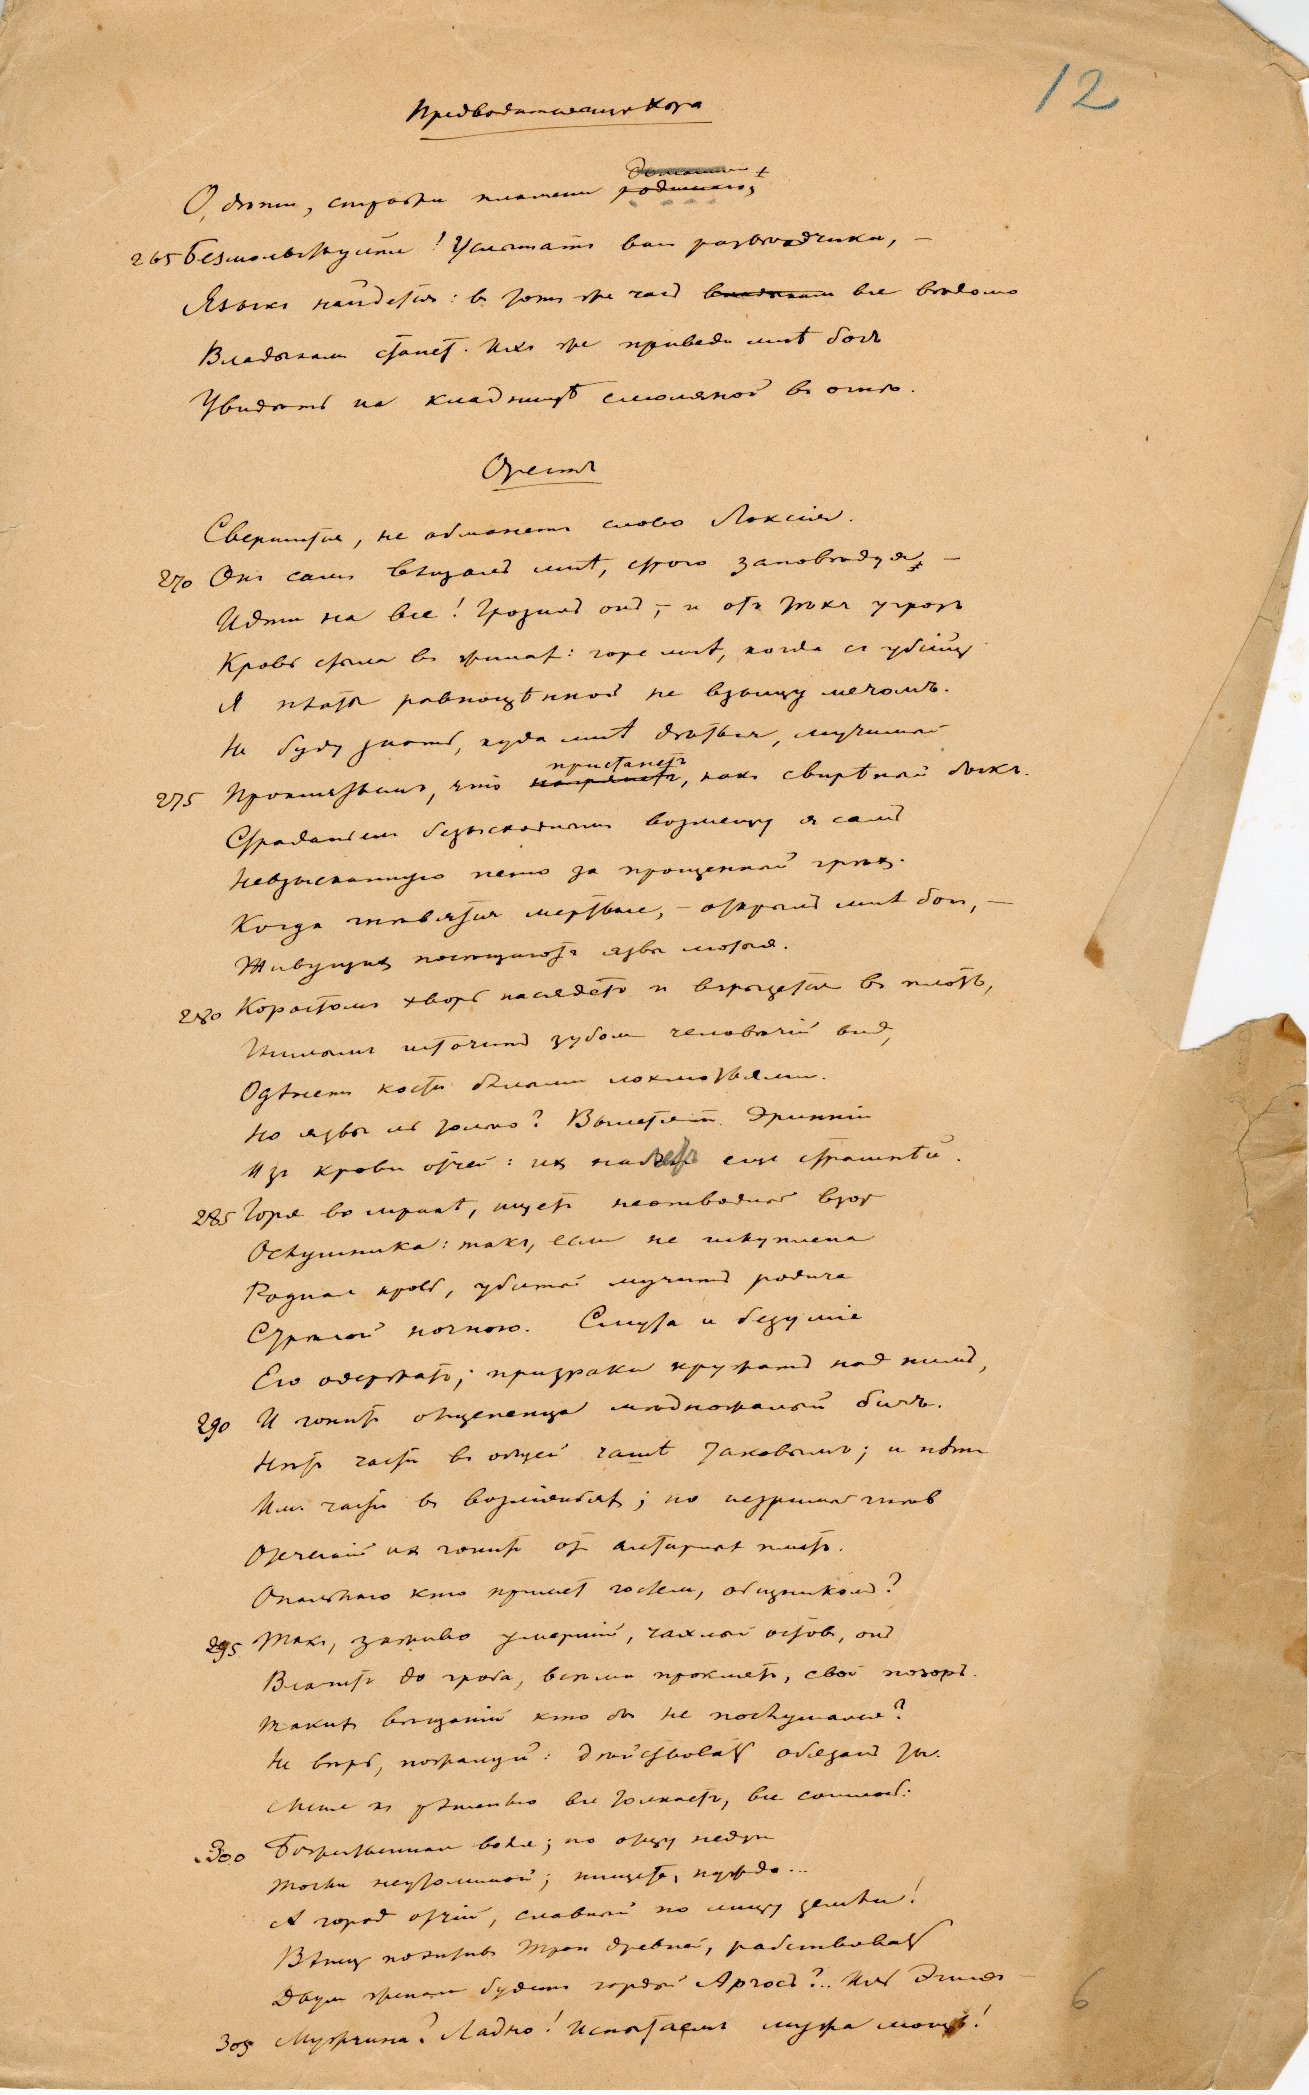 12
Предводительница хора
домашняго
О, дѣти, стражи пламени родимаго,
265 Безмолвствуйте! Услышатъ васъ развѣдчики, –
Языкъ найдется: въ тотъ же часъ владыкамъ все вѣдомо
Владыкамъ станетъ. Ихъ же приведи мнѣ богъ
Увидѣть на кладнищѣ смоляной въ огнѣ.
Орестъ
Свершится, не обманетъ слово Локсія.
270 Онъ самъ вѣщалъ мнѣ, строго заповѣдуя, –
Идти на все! Грозилъ онъ, – и отъ тѣхъ угрозъ
Кровь стыла въ жилахъ: горе мнѣ, когда съ убійцъ
Я платы равноцѣнной не взыщу мечомъ.
Не буду знать, куда мнѣ дѣться, мучимый
пристанетъ
275 Проклятьемъ, что нагрянетъ, какъ свирѣпый быкъ.
Страданьемъ безысходнымъ возмещу я самъ
Невзысканную пеню за прощенный грѣхъ.
Когда гнѣвятся мертвые, – открылъ мнѣ богъ, –
Живущихъ посѣщаютъ язвы лютыя.
280 Коростой хворь насядетъ и вгрызется въ плоть,
Гнилымъ источитъ зубомъ человѣчій видъ,
Одѣнетъ кости бѣлыми лохмотьями.
Но язвы ль только? Вылетятъ Эринніи
Изъ крови отчей: ихъ налетъ еще страшнѣй.
285 Горя во мракѣ, ищетъ неотводный взоръ
Ослушника: такъ, если не искуплена
Родная кровь, убитый мучитъ родича
Стрѣлой ночною. Смута и безуміе
Его одержатъ; призраки кружатъ надъ нимъ,
290 И гонитъ отщепенца мѣдножалый бичъ.
Нѣтъ части въ общей чашѣ таковымъ; и нѣтъ
Имъ части въ возліяньяхъ; но незримый гнѣвъ
Отеческій ихъ гонитъ отъ алтарныхъ плитъ.
Опальнаго кто приметъ гостемъ, общникомъ?
295 Такъ, заживо умершій, чахлый остовъ, онъ
Влачитъ до гроба, всѣми проклятъ, свой позоръ.
Такихъ вѣщаній кто бы не послушался?
Не вѣрь, пожалуй: дѣйствовать обязанъ ты.
Меня къ рѣшенью все толкаетъ, все сошлось:
300 Божественная воля; по отцу недугъ
Тоски неутолимой; нищета, нужда...
А городъ отчій, славный по лицу земли!
Вѣнецъ похитивъ Трои древней, рабствовать
Двумъ женамъ будетъ гордый Аргосъ?.. Иль Эгисѳъ –
305 Мужчина? Ладно! Испытаемъ мужа мощь!
6